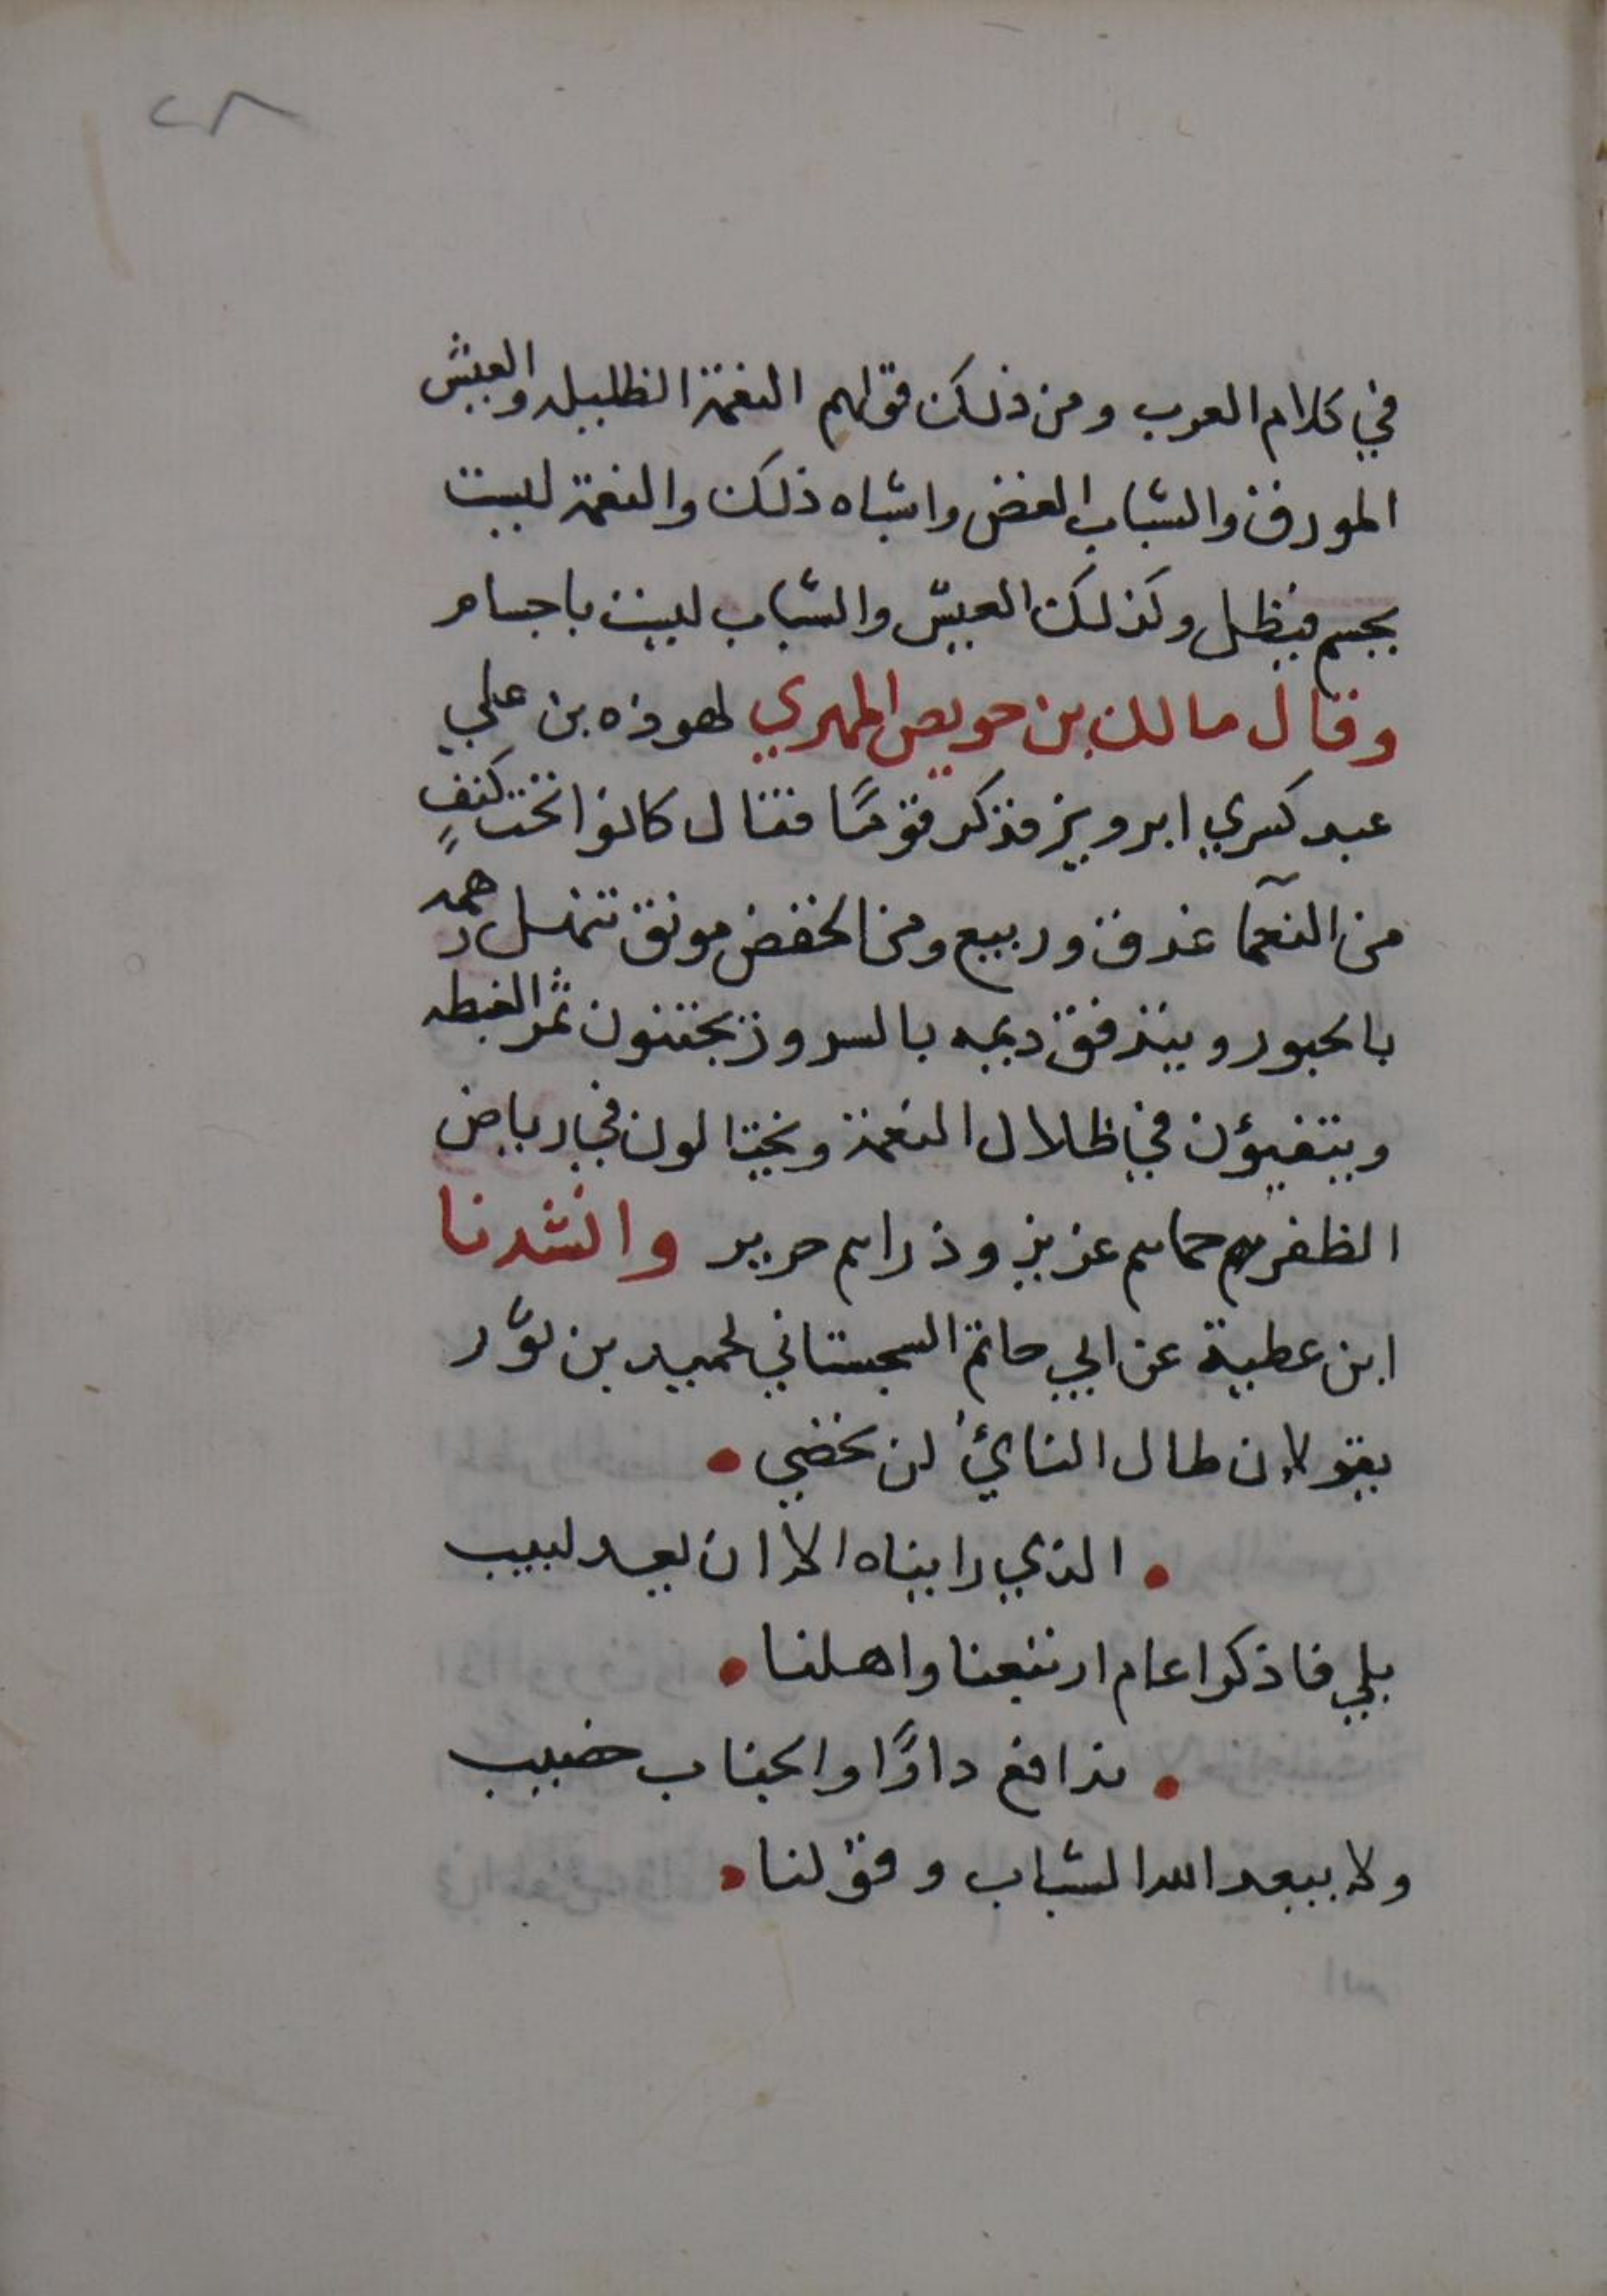 ٢٨
في كلام العرب ومن ذلك قولهم النغمة الظليله والعيش
المورق والشباب الغض واشباه ذلك والنعمة ليست
بجسم فيظل وكذلك العيش والشباب ليست باجسام
وقال مالك بن حويص المهري لهوذه بن علي
عبد كسري ابرويز فذكر قومًا فقال كانوا تحت كنفٍ
من النعمآ غدق وربيع ومن الخفض مونق تنهل رهمه
بالحبور ويتدفق ديمه بالسرور يجتنون ثمر الغبطه
ويتفيؤن في ظلال النعمة ويختالون في رياض
الظفر حماهم عزيز وذراهم حرير وانشدنا
ابن عطية عن ابي حاتم السجستاني لحميد بن ثور
يقولان طال النائ لن
الذي رايناه الا ان يعد لبيب
بلي فاذكرا عام ارتبعنا واهلنا
مدافع دارًا والجناب خصيب
ولا يبعد الله الشباب وقولنا